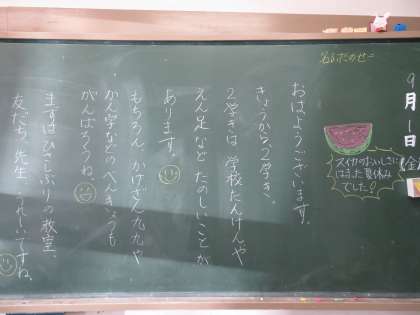 9月1日
おはようございます。
きょうから2学き。
2学きは 学校たんけんや
えん足など たのしいことが
あります。
もちろん、かけざん九九や
かん字などのべんきょうも
がんばろうね。
まずは ひさしぶりの教室、
友だち、先生 うれしいですね。
スイカのおいしさに
はまった夏休み
でした!